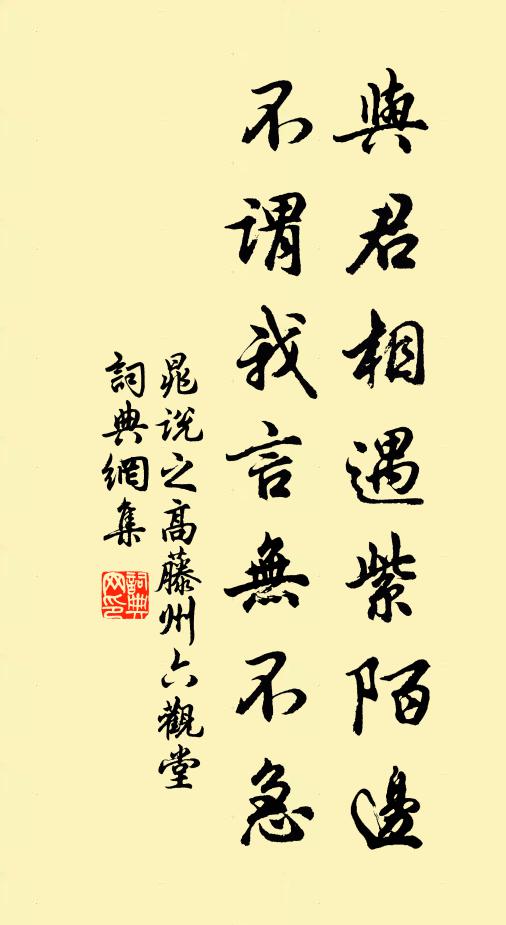 與君相遇紫陌邊
不謂我言無不急
晁說之高藤州六觀堂
詞典網集
詞典网印